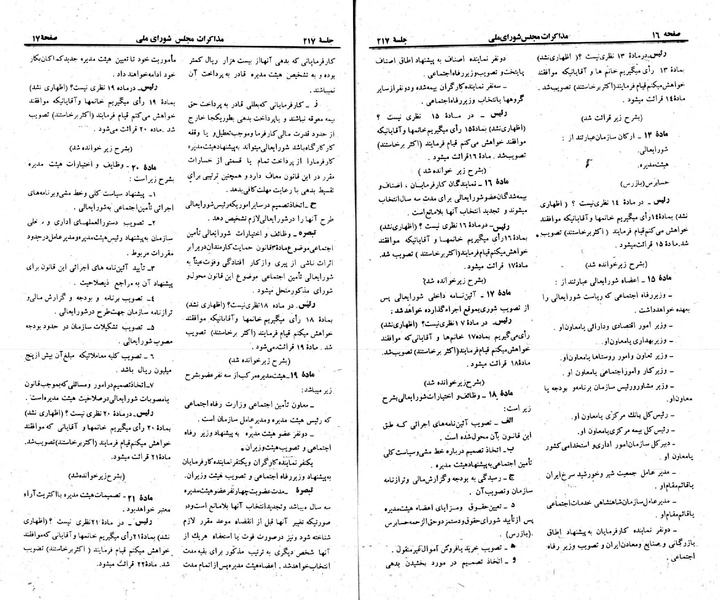 صفحه ۱۶
مذاکرات مجلس شورای ملی
جلسه ۲۱۷
رئیس ـ در ماده ۱۳ نظری نیست؟ (اظهاری نشد)
بماده ۱۳ رأی میگیریم خانم ها و آقایانیکه موافقند
خواهش میکنم قیام فرمایند (اکثر برخاستند) تصویب شد.
ماده ۱۴ قرائت میشود.
(بشرح زیر قرائت شد)
ماده ۱۴ ـ ارکان سازمان عبارتند از :
شورایعالی.
هیئت مدیره.
حسابرس (بازرس)
رئیس ـ در ماده ۱۴ نظری نیست ؟ (اظهاری
نشد) بماده ۱۴ رأی میگیریم خانمها و آقایانیکه موافقند
خواهش میکنم قیام فرمایند (اکثر برخاستند) تصویب
شد. ماده ۱۵ قرائت میشود.
(بشرح زیر خوانده شد)
ماده ۱۵ ـ اعضاء شورایعالی عبارتند از :
ـ وزیر رفاه اجتماعی که ریاست شورایعالی را
بعهده خواهد داشت.
ـ وزیر امور اقتصادی و دارائی یا معاون او.
ـ وزیر بهداری یا معاون او.
ـ وزیر تعاون و امور روستاها یا معاون او.
ـ وزیر کار و امور اجتماعی یا معاون او.
ـ وزیر مشاور و رئیس سازمان برنامه و بودجه یا
معاون او.
ـ رئیس کل بانک مرکزی یا معاون او.
ـ رئیس کل بیمه مرکزی یا معاون او.
ـ دبیر کل سازمان امور اداری و استخدامی کشور
یا معاون او.
ـ مدیر عامل جمعیت شیر و خورشید سرخ ایران
یا قائم مقام او.
ـ مدیر عامل سازمان شاهنشاهی خدمات اجتماعی
یا قائم مقام او.
ـ دو نفر نماینده کارفرمایان به پیشنهاد اطاق
بازرگانی و صنایع و معادن ایران و تصویب وزیر رفاه
اجتماعی .
دو نفر نماینده اصناف به پیشنهاد اطاق اصناف
پایتخت و تصویب وزیر رفاه اجتماعی.
ـ سه نفر نماینده کارگران بیمه شده و دو نفر از سایر
گروهها با انتخاب وزیر رفاه اجتماعی.
رئیس ـ در ماده ۱۵ نظری نیست ؟
(اظهاری نشد) بماده ۱۵ رأی میگیریم خانمها و آقایانیکه
موافقند خواهش میکنم قیام فرمایند (اکثر برخاستند)
تصویب شد. ماده ۱۶ قرائت میشود.
(بشرح زیر خوانده شد)
ماده ۱۶ ـ نمایندگان کارفرمایان ـ اصناف و
بیمه شدگان عضو شورایعالی برای مدت سه سال انتخاب
میشوند و تجدید انتخاب آنها بلامانع است.
رئیس ـ در ماده ۱۶ نظری نیست؟ (اظهاری نشد)
بماده ۱۶ رأی میگیریم خانمها و آقایانیکه موافقند خواهش
میکنم قیام فرمایند (اکثر برخاستند) تصویب شد. ماده
۱۷ قرائت میشود.
(بشرح زیر خوانده شد)
ماده ۱۷ ـ آئین نامه داخلی شورایعالی پس
از تصویب شوری بموقع اجرا گذارده خواهد شد.
رئیس ـ در ماده ۱۷ نظری نیست؟ (اظهاری نشد)
بماده ۱۷ رأی میگیریم خانم ها و آقایانیکه موافقند
خواهش میکنم قیام فرمایند (اکثر برخاستند) تصویب شد.
ماده ۱۸ قرائت میشود.
(بشرح زیر خوانده شد)
ماده ۱۸ ـ وظائف و اختیارات شورایعالی بشرح
زیر است :
الف ـ تصویب آئین نامه های اجرائی که طبق
این قانون بآن محول شده است .
ب ـ اتخاذ تصمیم درباره خط مشی و سیاست کلی
تأمین اجتماعی به پیشنهاد هیئت مدیره.
ج ـ رسیدگی به بودجه و گزارش مالی و ترازنامه
سازمان و تصویب آن .
د ـ تعیین حقوق و مزایای اعضاء هیئت مدیره
پس از تأیید شورای حقوق و دستمزد و حق الزحمه حسابرس
(بازرس).
ه ـ تصویب خرید یا فروش اموال غیر منقول .
و ـ اتخاذ تصمیم در مورد بخشیدن بدهی
جلسه ۲۱۷
مذاکرات مجلس شورای ملی
صفحه ۱۷
کارفرمایانی که بدهی آنها از بیست هزار ریال کمتر
بوده و به تشخیص هیئت مدیره قادر به پرداخت آن
نمیباشند .
ز ـ کارفرمایانی که بعللی قادر به پرداخت حق
بیمه معوقه نباشند و یا پرداخت بدهی بطور یکجا خارج
از حدود قدرت مالی کارفرما و موجب تعطیل و یا وقفه
کار کارگاه باشد شورایعالی میتواند به پیشنهاد هیئت مدیره
کارفرما را از پرداخت تمام یا قسمتی از خسارات
مقرر در این قانون معاف دارد و همچنین ترتیبی برای
تقسیط بدهی با رعایت مهلت کافی بدهد.
ح ـ اتخاذ تصمیم در سایر اموریکه رئیس شورایعالی
طرح آنها را در شورایعالی لازم تشخیص دهد .
تبصره ـ وظائف و اختیارات شورایعالی تأمین
اجتماعی موضوع ماده ۳ قانون حمایت کارمندان در برابر
اثرات ناشی از پیری و از کار افتادگی و فوت عیناً به
شورایعالی تأمین اجتماعی موضوع این قانون محول و
شورای مذکور منحل میشود.
رئیس ـ در ماده ۱۸ نظری نیست؟ (اظهاری نشد)
بماده ۱۸ رأی میگیریم خانمها و آقایانیکه موافقند
خواهش میکنم قیام فرمایند (اکثر برخاستند) تصویب
شد. ماده ۱۹ قرائت میشود.
(بشرح زیر خوانده شد)
ماده ۱۹ ـ هیئت مدیره مرکب از سه نفر عضو بشرح
زیر میباشد :
ـ معاون تأمین اجتماعی وزارت رفاه اجتماعی
که رئیس هیئت مدیره و مدیر عامل سازمان است .
ـ دو نفر عضو هیئت مدیره به پیشنهاد وزیر رفاه
اجتماعی و تصویب هیئت وزیران.
یکنفر نماینده کارگران و یکنفر نماینده کارفرمایان
به پیشنهاد وزیر رفاه اجتماعی و تصویب هیئت وزیران.
تبصره ـ مدت عضویت چهار نفر عضو هیئت مدیره
سه سال میباشد و تجدید انتخاب آنها بلامانع است و در
صورتیکه تغییر آنها قبل از انقضاء موعد مقرر لازم
شناخته شود و نیز در صورت فوت یا استعفاء هر یک از
آنها شخص دیگری به ترتیب مذکور برای بقیه مدت
انتخاب خواهد شد. اعضاء هیئت مدیره پس از اتمام مدت
مأموریت خود تا تعیین هیئت مدیره جدید کماکان بکار
خود ادامه خواهند داد .
رئیس ـ در ماده ۱۹ نظری نیست؟ (اظهاری نشد)
بماده ۱۹ رأی میگیریم خانمها و آقایانیکه موافقند
خواهش میکنم قیام فرمایند (اکثر برخاستند) تصویب
شد. ماده ۲۰ قرائت می شود .
(بشرح زیر خوانده شد)
ماده ۲۰ ـ وظایف و اختیارات هیئت مدیره
بشرح زیر است :
۱ـ پیشنهاد سیاست کلی و خط مشی و برنامه های
اجرائی تأمین اجتماعی به شورایعالی.
۲ـ تصویب دستورالعملهای اداری و داخلی
سازمان به پیشنهاد رئیس هیئت مدیره و مدیر عامل در حدود
مقررات مربوط .
۳ـ تأیید آئین نامه های اجرائی این قانون برای
پیشنهاد آن به مراجع ذیصلاحیت .
۴ـ تصویب برنامه و بودجه و گزارش مالی و
ترازنامه سازمان جهت طرح در شورایعالی .
۵ـ تصویب تشکیلات سازمان در حدود بودجه
مصوب شورایعالی.
۶ـ تصویب کلیه معاملاتیکه مبلغ آن بیش از پنج
میلیون ریال باشد .
۷ـ اتخاذ تصمیم در امور و مسائلی که بموجب قانون
یا مصوبات شورایعالی در صلاحیت هیئت مدیره است .
رئیس ـ در ماده ۲۰ نظری نیست ؟ (اظهاری نشد)
بماده ۲۰ رأی میگیریم خانمها و آقایانی که موافقند
خواهش میکنم قیام فرمایند (اکثر برخاستند) تصویب شد.
ماده ۲۱ قرائت میشود .
(بشرح زیر خوانده شد)
ماده ۲۱ ـ تصمیمات هیئت مدیره با اکثریت آراء
معتبر خواهد بود .
رئیس ـ در ماده ۲۱ نظری نیست؟ (اظهاری نشد)
بماده ۲۱ رأی میگیریم خانمها و آقایانی که موافقند
خواهش میکنم قیام فرمایند (اکثر برخاستند) تصویب
شد. ماده ۲۲ قرائت میشود .